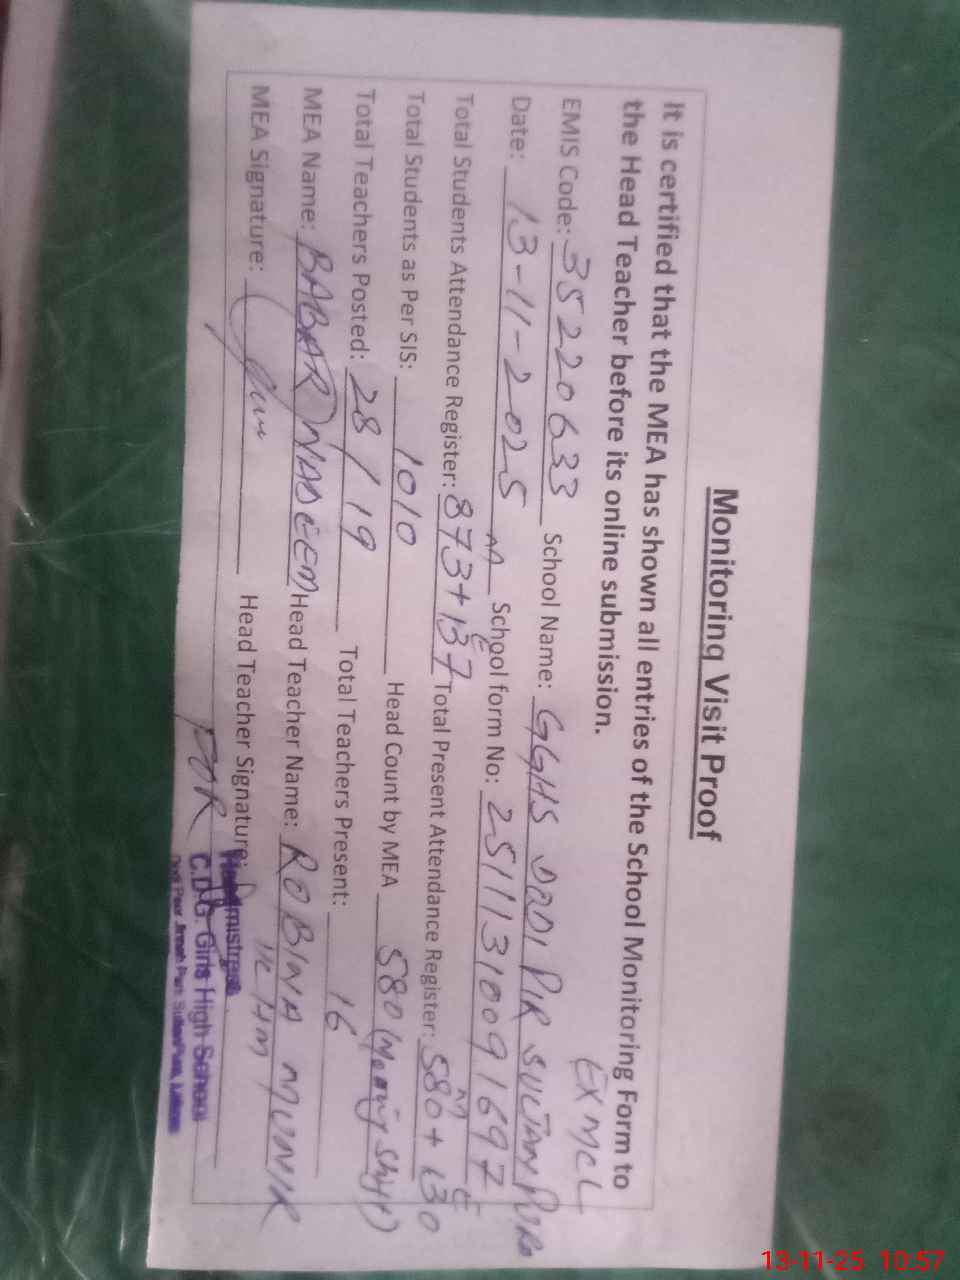 Monitoring Visit Proof
It is certified that the MEA has shown all entries of the School Monitoring Form to
the Head Teacher before its online submission.
EX MCL
EMIS Code: 35220633 School Name: GGHS DADI PIR SULTAN PURA
Date: 13-11-2025 School form No: 25111310091697
M E M E
Total Students Attendance Register: 873+137 Total Present Attendance Register: 580+130
Total Students as Per SIS: 1010 Head Count by MEA 580 (Morning Shift)
Total Teachers Posted: 28/19 Total Teachers Present: 16
MEA Name: BABAR NADEEM Head Teacher Name: ROBINA MUNIR
MEA Signature: Head Teacher Signature: I/C HM
FOR
Headmistress
C.D.G. Girls High School
Sultan Pura,
13-11-25 10:57